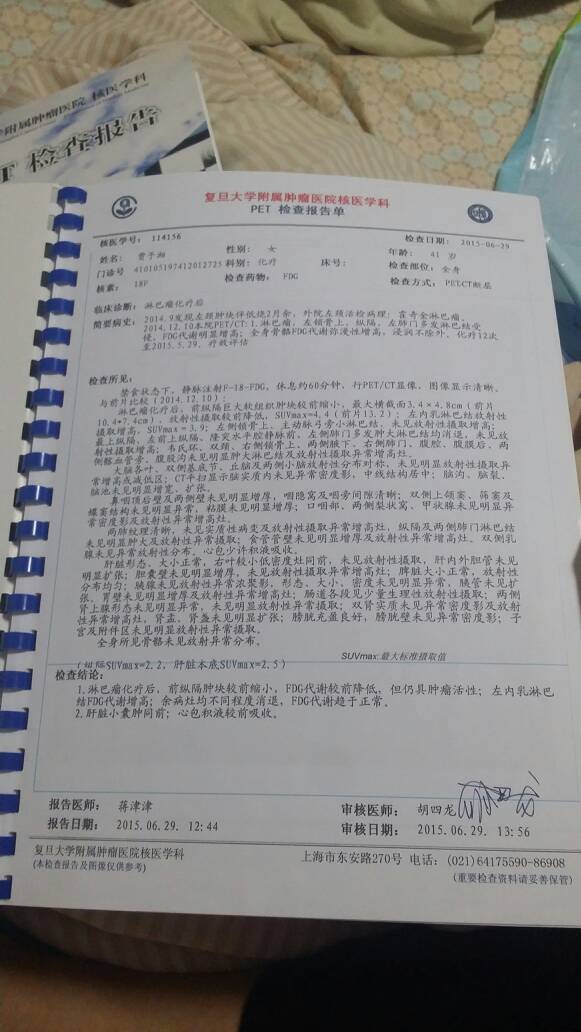 附属肿瘤医院 核医学科
T 检查报告
复旦大学附属肿瘤医院核医学科
PET 检查报告单
核医学号: 114156 检查日期: 2015-06-29
姓名: 贾予湘 性别: 女 年龄: 41 岁
门诊号 410105197412012725 科别: 化疗 床号: 检查部位: 全身
核素: 18F 检查药物: FDG 检查方式: PET/CT断层
临床诊断: 淋巴瘤化疗后
简要病史: 2014.9发现左颈肿块伴低烧2月余, 外院左颈活检病理: 霍奇金淋巴瘤。
2014.12.10本院PET/CT:1.淋巴瘤, 左锁骨上、纵隔、左肺门多发淋巴结受
侵, FDG代谢明显增高; 全身骨骼FDG代谢弥漫性增高, 浸润不除外, 化疗12次
至2015.5.29, 疗效评估
检查所见:
禁食状态下, 静脉注射F-18-FDG, 休息约60分钟, 行PET/CT显像, 图像显示清晰。
与前片比较(2014.12.10):
淋巴瘤化疗后, 前纵隔巨大软组织肿块较前缩小, 最大横截面3.4×4.8cm(前片
10.4*7.4cm), 放射性摄取较前降低, SUVmax=4.4(前片13.2); 左内乳淋巴结放射性
摄取增高, SUVmax=3.9; 左侧锁骨上、主动脉弓旁小淋巴结, 未见放射性摄取增高;
最上纵隔、左前上纵隔、隆突水平腔静脉前、左侧肺门多发肿大淋巴结均消退, 未见放
射性摄取增高。韦氏环、双颈、右侧锁骨上、两侧腋下、右侧肺门、腹腔、腹膜后、两
侧髂血管旁、腹股沟未见明显肿大淋巴结及放射性摄取异常增高灶。
大脑各叶、双侧基底节、丘脑及两侧小脑放射性分布对称, 未见明显放射性摄取异
常增高或减低区; CT平扫显示脑实质内未见异常密度影, 中线结构居中; 脑沟、脑裂、
脑池未见明显增宽、扩张。
鼻咽顶后壁及两侧壁未见明显增厚, 咽隐窝及咽旁间隙清晰; 双侧上颌窦、筛窦及
蝶窦结构未见异常, 粘膜未见明显增厚; 口咽部、两侧梨状窝、甲状腺未见明显异
常密度影及放射性异常增高灶。
两肺纹理清晰, 未见实质性病变及放射性摄取异常增高灶, 纵隔及两侧肺门淋巴结
未见明显肿大及放射性异常摄取; 食管管壁未见明显增厚及放射性异常增高灶。双侧乳
腺未见异常放射性分布。心包少许积液吸收。
肝脏形态、大小正常, 右叶较小低密度灶同前, 未见放射性摄取, 肝内外胆管未见
明显扩张; 胆囊壁未见明显增厚, 未见放射性摄取异常增高灶; 脾脏大小正常, 放射性
分布均匀; 胰腺未见放射性异常浓聚影, 形态、大小, 密度未见明显异常, 胰管未见扩
张, 胃壁未见明显增厚及放射性异常增高灶; 肠道各段见少量生理性放射性摄取; 两侧
肾上腺形态未见明显异常, 未见明显放射性异常摄取; 双肾实质未见异常密度影及放射
性异常增高灶, 肾盂、肾盏未见明显扩张; 膀胱充盈良好, 膀胱壁未见异常密度影; 子
宫及附件区未见明显放射性异常摄取。
全身所见骨骼未见放射异常分布。
SUVmax:最大标准摄取值
(纵隔SUVmax=2.2, 肝脏本底SUVmax=2.5)
检查结论:
1.淋巴瘤化疗后, 前纵隔肿块较前缩小, FDG代谢较前降低, 但仍具肿瘤活性; 左内乳淋巴
结FDG代谢增高; 余病灶均不同程度消退, FDG代谢趋于正常。
2.肝脏小囊肿同前; 心包积液较前吸收。
报告医师: 蒋津津 审核医师: 胡四龙
报告日期: 2015.06.29. 12:44 审核日期: 2015.06.29. 13:56
复旦大学附属肿瘤医院核医学科 上海市东安路270号 电话: (021)64175590-86908
(本检查报告及图像仅供参考) (重要检查资料请妥善保管)